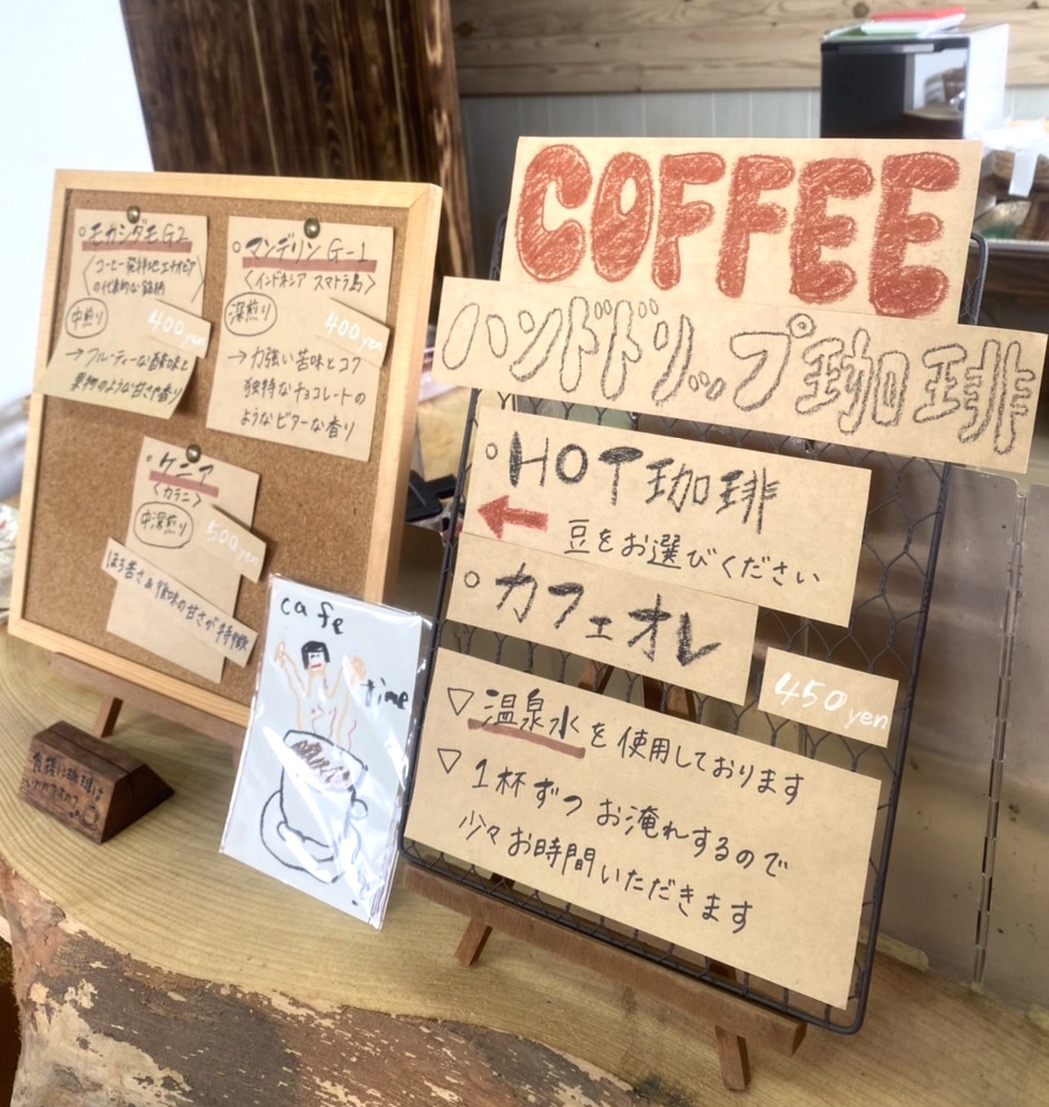 。モカシダモG2
〈コーヒー発祥地エチオピア
の代表的な銘柄〉
中煎り
400yen
→フルーティーな酸味と
果物のような甘さや香り
。マンデリン G-1
〈インドネシア スマトラ島〉
深煎り
400yen
→力強い苦味とコク
独特なチョコレートの
ようなビターな香り
。ケニア
〈カラニ〉
中深煎り
500yen
ほろ苦さ&後味の甘さが特徴
cafe
time
食後に珈琲は
いかがですか?
COFFEE
ハンドドリップ珈琲
。HOT珈琲
←豆をお選びください
。カフェオレ
450yen
▽温泉水を使用しております
▽1杯ずつお淹れするので
少々お時間いただきます